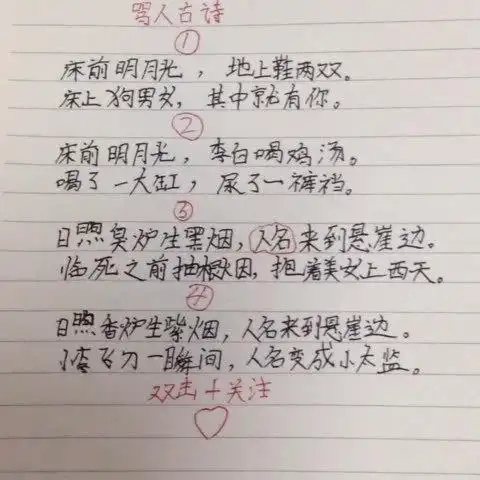 骂人古诗
①
床前明月光，地上鞋两双。
床上狗男女，其中就有你。
②
床前明月光，李白喝鸡汤。
喝了一大缸，尿了一裤裆。
③
日照臭炉生黑烟，人名来到悬崖边。
临死之前抽根烟，抱着美女上西天。
④
日照香炉生紫烟，人名来到悬崖边。
小李飞刀一瞬间，人名变成小太监。
双击+关注